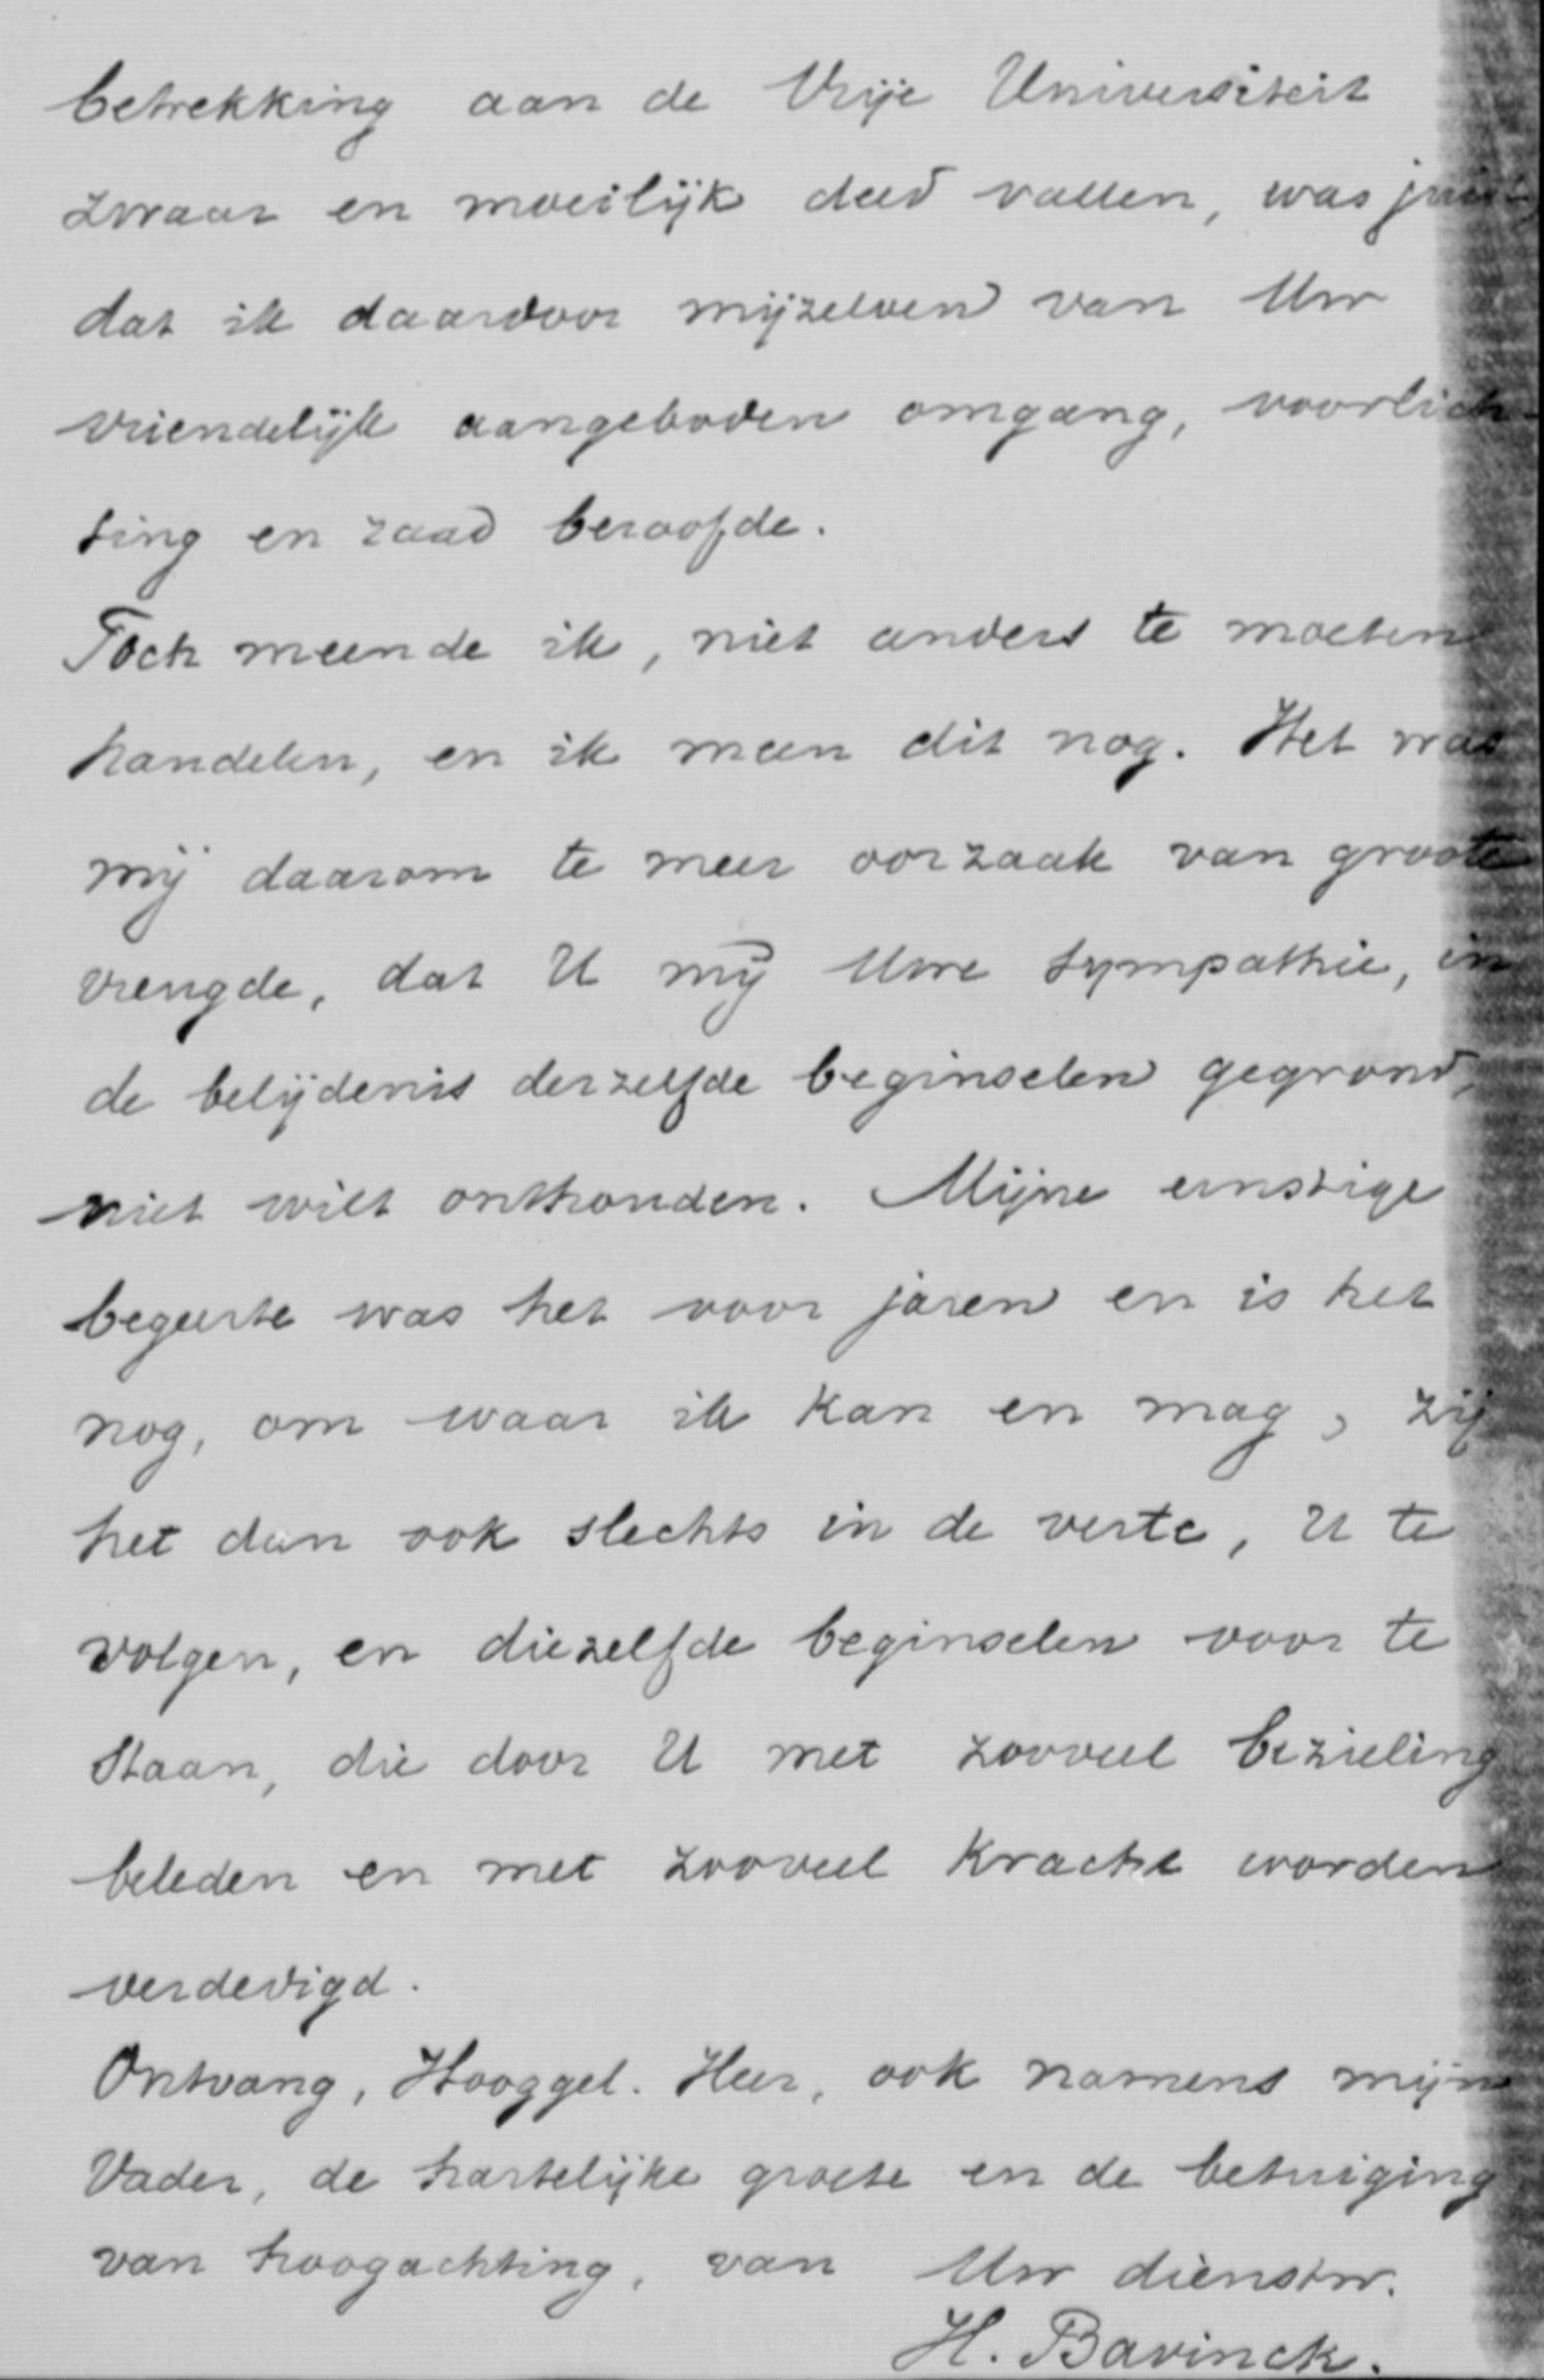 betrekking aan de Vrije Universiteit
zwaar en moeilijk deed vallen, was juist
dat ik daardoor mijzelven van Uw
vriendelijk aangeboden omgang, voorlich-
ting en raad beroofde.
Toch meende ik, niet anders te moeten
handelen, en ik meen dit nog. Het was
mij daarom te meer oorzaak van groote
vreugde, dat U mij Uwe sympathie, in
de belijdenis derzelfde beginselen gegrond,
niet wilt onthouden. Mijne ernstige
begeerte was het voor jaren en is het
nog, om waar ik kan en mag, zij
het dan ook slechts in de verte, U te
volgen, en diezelfde beginselen voor te
staan, die door U met zooveel bezieling
beleden en met zooveel kracht worden
verdedigd.
Ontvang, Hooggel. Heer, ook namens mijn
Vader, de hartelijke groete en de betuiging
van hoogachting, van Uw dienstw.
H. Bavinck.